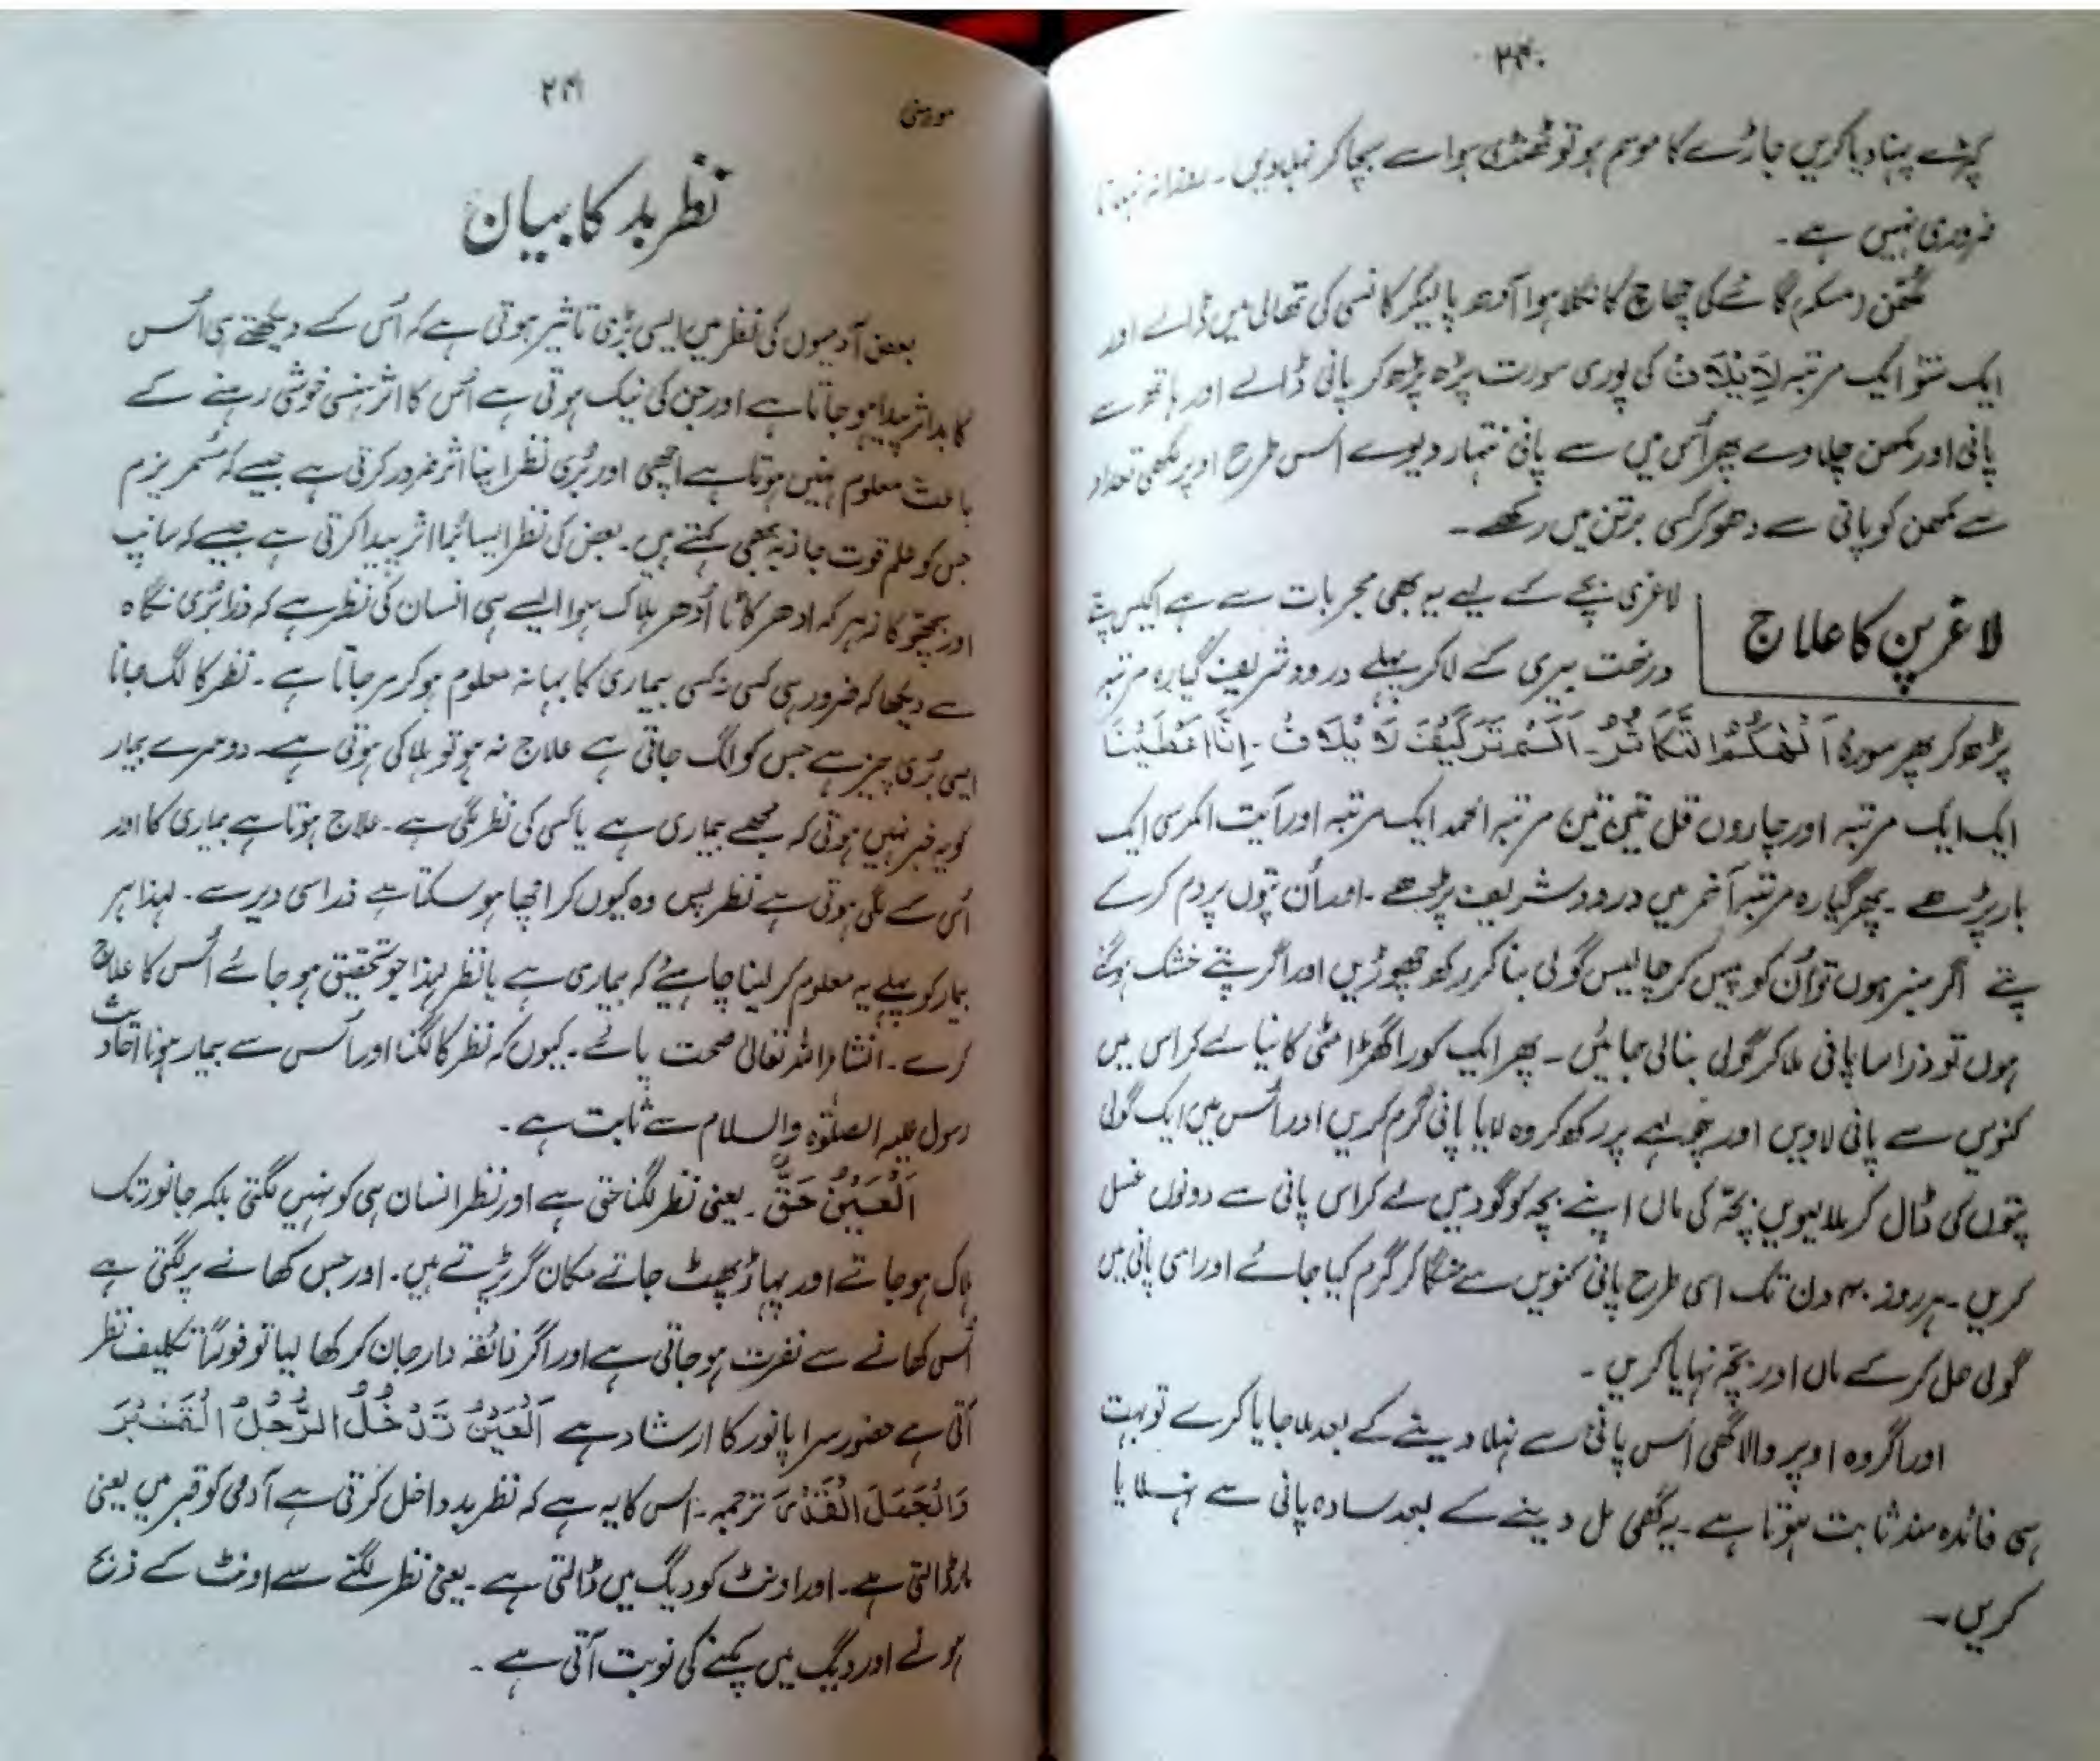 ۲۴۰
کپڑے پہنا دیا کریں جاڑے کا موسم ہو تو ٹھنڈی ہوا سے بچا کر نہلا دیں۔ روزانہ نہلانا
ضروری نہیں ہے۔
مکھن (مسکہ) گائے کی چھاچھ کا نکلا ہوا آدھ پا لیکر کانسی کی تھالی میں ڈالے اور
ایک سَو ایک مرتبہ لِاِیْلَافِ کی پوری سورت پڑھ پڑھ کر پانی ڈالے اور ہاتھ سے
پانی اور مکھن چلاوے پھر اُس میں سے پانی نتھار دیوے اس طرح اوپر لکھی تعداد
سے مکھن کو پانی سے دھو کر کسی برتن میں رکھے۔
لاغر پن کا علاج
لاغری بچے کے لیے یہ بھی مجربات سے ہے اکیس پتے
درخت بیری کے لا کر پہلے درود شریف گیارہ مرتبہ
پڑھ کر پھر سورۂ اَلْهٰكُمُ التَّكَاثُرُ۔ اَلَمْ تَرَكَيْفَ لِاِيْلَافِ۔ اِنَّا اَعْطَيْنَا
ایک ایک مرتبہ اور چاروں قل تین تین مرتبہ الحمد ایک مرتبہ اور آیت الکرسی ایک
بار پڑھے۔ پھر گیارہ مرتبہ آخر میں درود شریف پڑھے۔ اور اُن پتوں پر دم کرے
پتے اگر سبز ہوں تو اُن کو پیس کر چالیس گولی بنا کر رکھ چھوڑیں اور اگر پتے خشک ہوگئے
ہوں تو ذرا سا پانی ملا کر گولی بنالی جائیں۔ پھر ایک کورا گھڑا مٹی کا نیا لے کر اس میں
کنویں سے پانی لاویں اور چولہے پر رکھ کر وہ لایا پانی گرم کریں اور اُس میں ایک گولی
پتوں کی ڈال کر ملا لیویں بچّہ کی ماں اپنے بچہ کو گود میں لے کر اس پانی سے دونوں غسل
کریں۔ ہر روز ۴۰ دن تک اسی طرح پانی کنویں سے منگا کر گرم کیا جائے اور اسی پانی میں
گولی حل کر کے ماں اور بچّہ نہایا کریں۔
اور اگر وہ اوپر والا گھی اُس پانی سے نہلا دینے کے بعد ملا جایا کرے تو بہت
ہی فائدہ مند ثابت ہوتا ہے۔ یہ گھی مل دینے کے بعد سادہ پانی سے نہلایا
کریں۔
۲۴۱
نظر بد کا بیان
بعض آدمیوں کی نظر میں ایسی بڑی تاثیر ہوتی ہے کہ اُس کے دیکھتے ہی اُس
کا بد اثر پیدا ہو جاتا ہے اور جن کی نیک ہوتی ہے اُس کا اثر ہنسی خوشی رہنے کے
باعث معلوم نہیں ہوتا ہے اچھی اور بُری نظر اپنا اثر ضرور کرتی ہے جیسے کہ مسمریزم
جس کو علم قوت جاذبہ بھی کہتے ہیں۔ بعض کی نظر ایسا بُرا اثر پیدا کرتی ہے جیسے کہ سانپ
اور بچھو کا زہر کہ ادھر کاٹا اُدھر ہلاک ہوا ایسے ہی انسان کی نظر ہے کہ ذرا بُری نگاہ
سے دیکھا کہ ضرور ہی کسی نہ کسی بیماری کا بہانہ معلوم ہو کر مر جاتا ہے۔ نظر کا لگ جانا
ایسی بُری چیز ہے جس کو لگ جاتی ہے علاج نہ ہو تو ہلاکی ہوتی ہے۔ دوسرے بیمار
کو یہ خبر نہیں ہوتی کہ مجھے بیماری ہے یا کسی کی نظر لگی ہے۔ علاج ہوتا ہے بیماری کا اور
اُس کے لگی ہوتی ہے نظر پس وہ کیوں کر اچھا ہو سکتا ہے ذرا سی دیر سے۔ لہذا ہر
بیمار کو پہلے یہ معلوم کر لینا چاہیئے کہ بیماری ہے یا نظر لہذا جو تحقیق ہو جائے اُس کا علاج
کرے۔ انشاء اللہ تعالیٰ صحت پائے۔ کیوں کہ نظر کا لگنا اور اُس سے بیمار ہونا احادیث
رسول علیہ الصلوٰۃ والسلام سے ثابت ہے۔
اَلْعَيْنُ حَقٌّ۔ یعنی نظر لگنا حق ہے اور نظر انسان ہی کو نہیں لگتی بلکہ جانور تک
ہلاک ہو جاتے اور پہاڑ پھٹ جاتے مکان گر پڑتے ہیں۔ اور جس کھانے پر لگتی ہے
اُس کھانے سے نفرت ہو جاتی ہے اور اگر ذائقہ دار جان کر کھا لیا تو فوراً تکلیف نظر
آتی ہے حضور سراپا نور کا ارشاد ہے اَلْعَيْنُ تَدْخُلُ الرَّجُلَ الْقَبْرَ
وَالْجَمَلَ الْقِدْرَ ترجمہ۔ اس کا یہ ہے کہ نظر بد داخل کرتی ہے آدمی کو قبر میں یعنی
مار ڈالتی ہے۔ اور اونٹ کو دیگ میں ڈالتی ہے۔ یعنی نظر لگنے سے اونٹ کے ذبح
ہونے اور دیگ میں پکنے کی نوبت آتی ہے۔